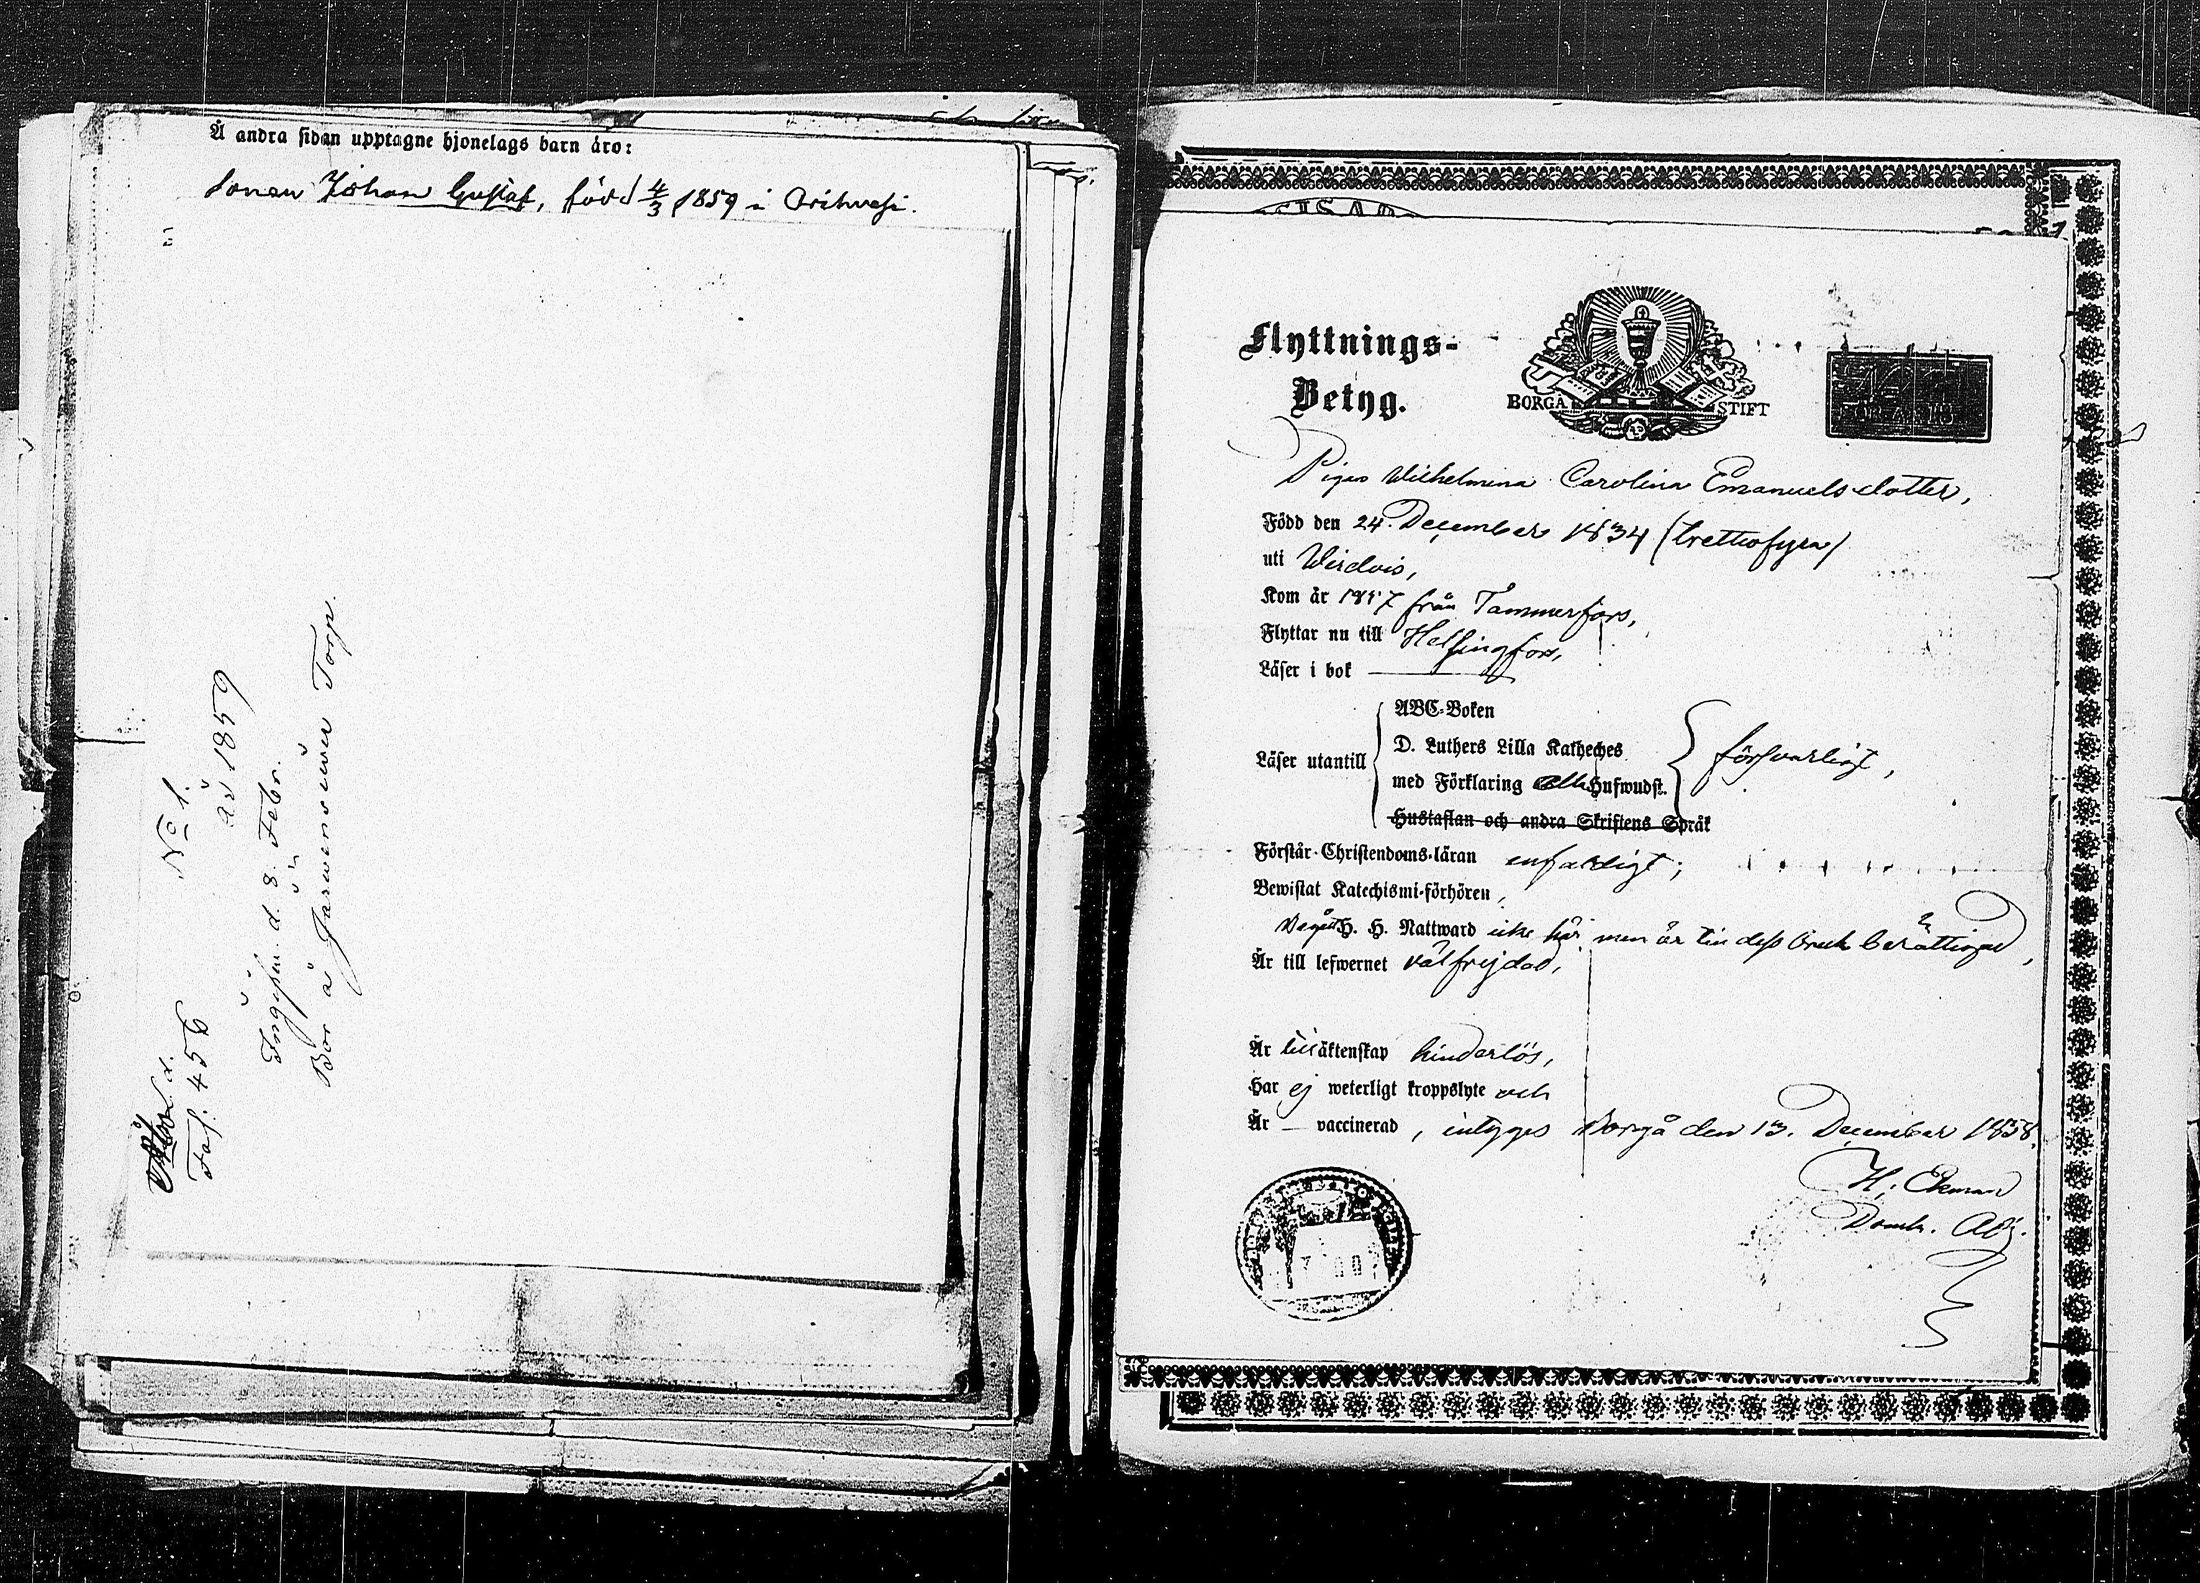 Å andra sidan upptagne hjonelags barn äro:
Sonen Johan Gustaf, född 4/3 1859 i Orihvesi.
No 1.
år 1859
Ingifven d. 8 Febr.
Bor å Jarvensivu Torp.
Fol. 456
Flyttnings-
Betyg.
BORGÅ STIFT
Pigan Wilhelmina Carolina Emanuelsdotter,
Född den 24 December 1834 (trettiofyra)
uti Wirdois,
Kom år 1857 från Tammerfors,
Flyttar nu till Helsingfors,
Läser i bok
ABC-Boken
D. Luthers Lilla Katheches
Läser utantill
med Förklaring alla Hufwudst.
försvarligt,
Hustaflan och andra Skriftens Språk
Förstår Christendoms-läran enfaldigt;
Bewistat Katechismi-förhören,
Begått H. H. Nattward icke här men är till dess bruk berättigad,
Är till lefwernet välfrejdad,
Är till äktenskap hinderlös,
Har ej weterligt kroppslyte och
Är — vaccinerad, intygas Borgå den 13. December 1858.
H. Ekman
Domk. Adj.